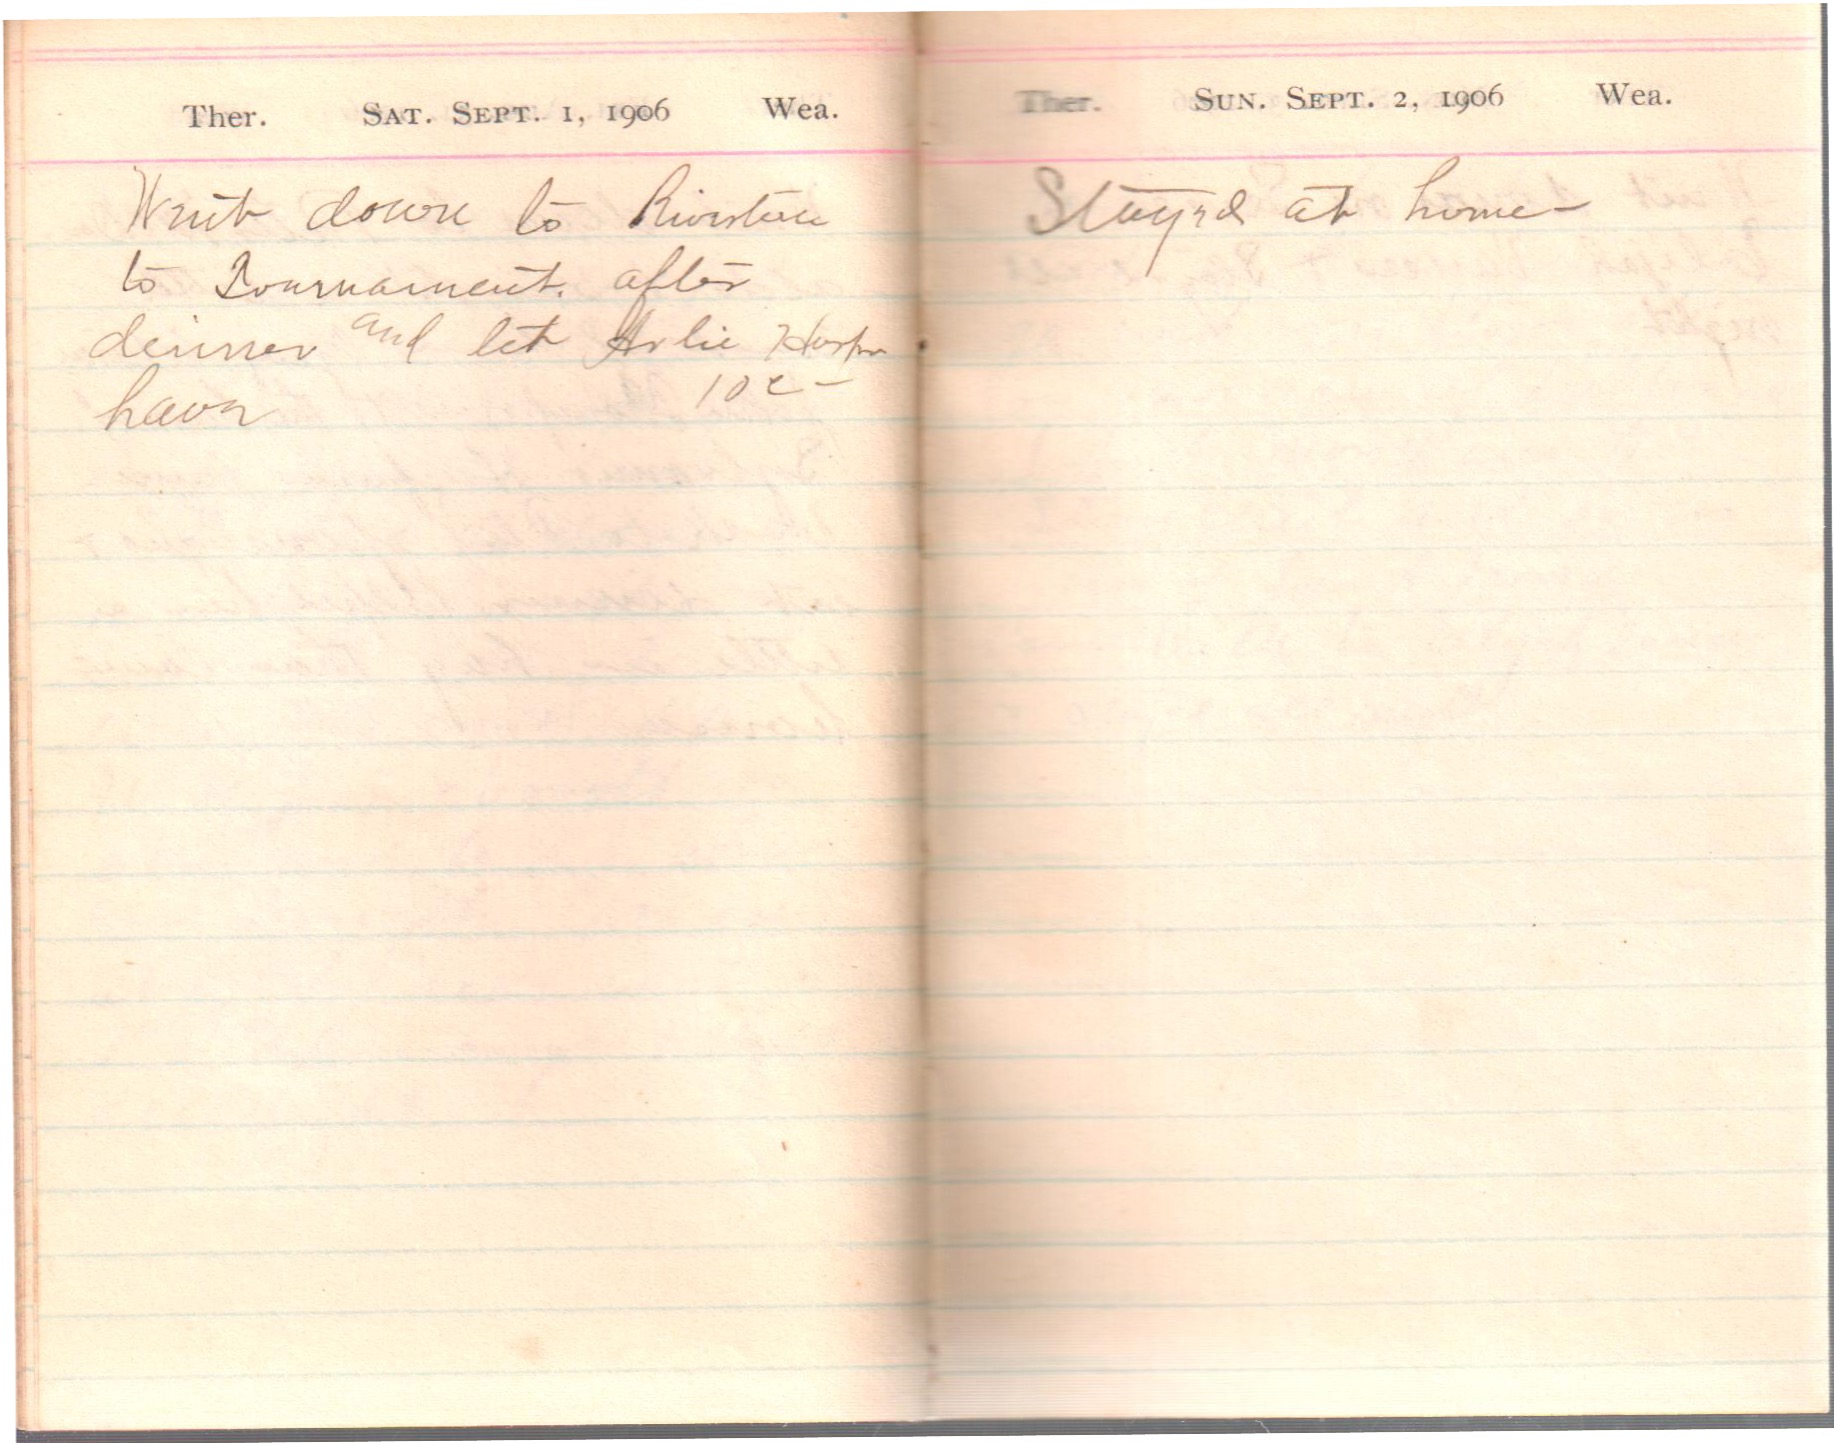 Ther. Sat. Sept. 1, 1906 Wea.
Went down to
to Tournament. after
dinner and let Arlie
have 10¢ –
Ther. Sun. Sept. 2, 1906 Wea.
Stayed at home –